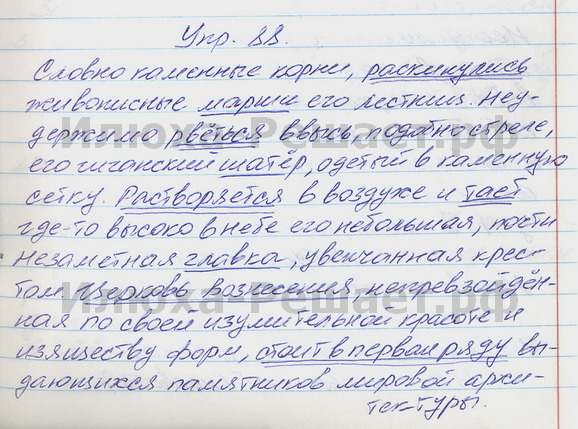 Упр. 88.
Словно каменные корни, раскинулись
живописные марши его лестниц. Неу-
держимо рвёться ввысь, подобно стреле,
его гиганский шатёр, одетый в каменную
сетку. Растворяется в воздухе и тает
где-то высоко в небе его небольшая, почти
незаметная главка, увенчанная крес-
том. Церковь Вознесения, непревзойдён-
ная по своей изумительной красоте и
изяществу форм, стоит в первом ряду вы-
дающихся памятников мировой архи-
тектуры.
Илюха-Решает.рф
Илюха-Решает.рф